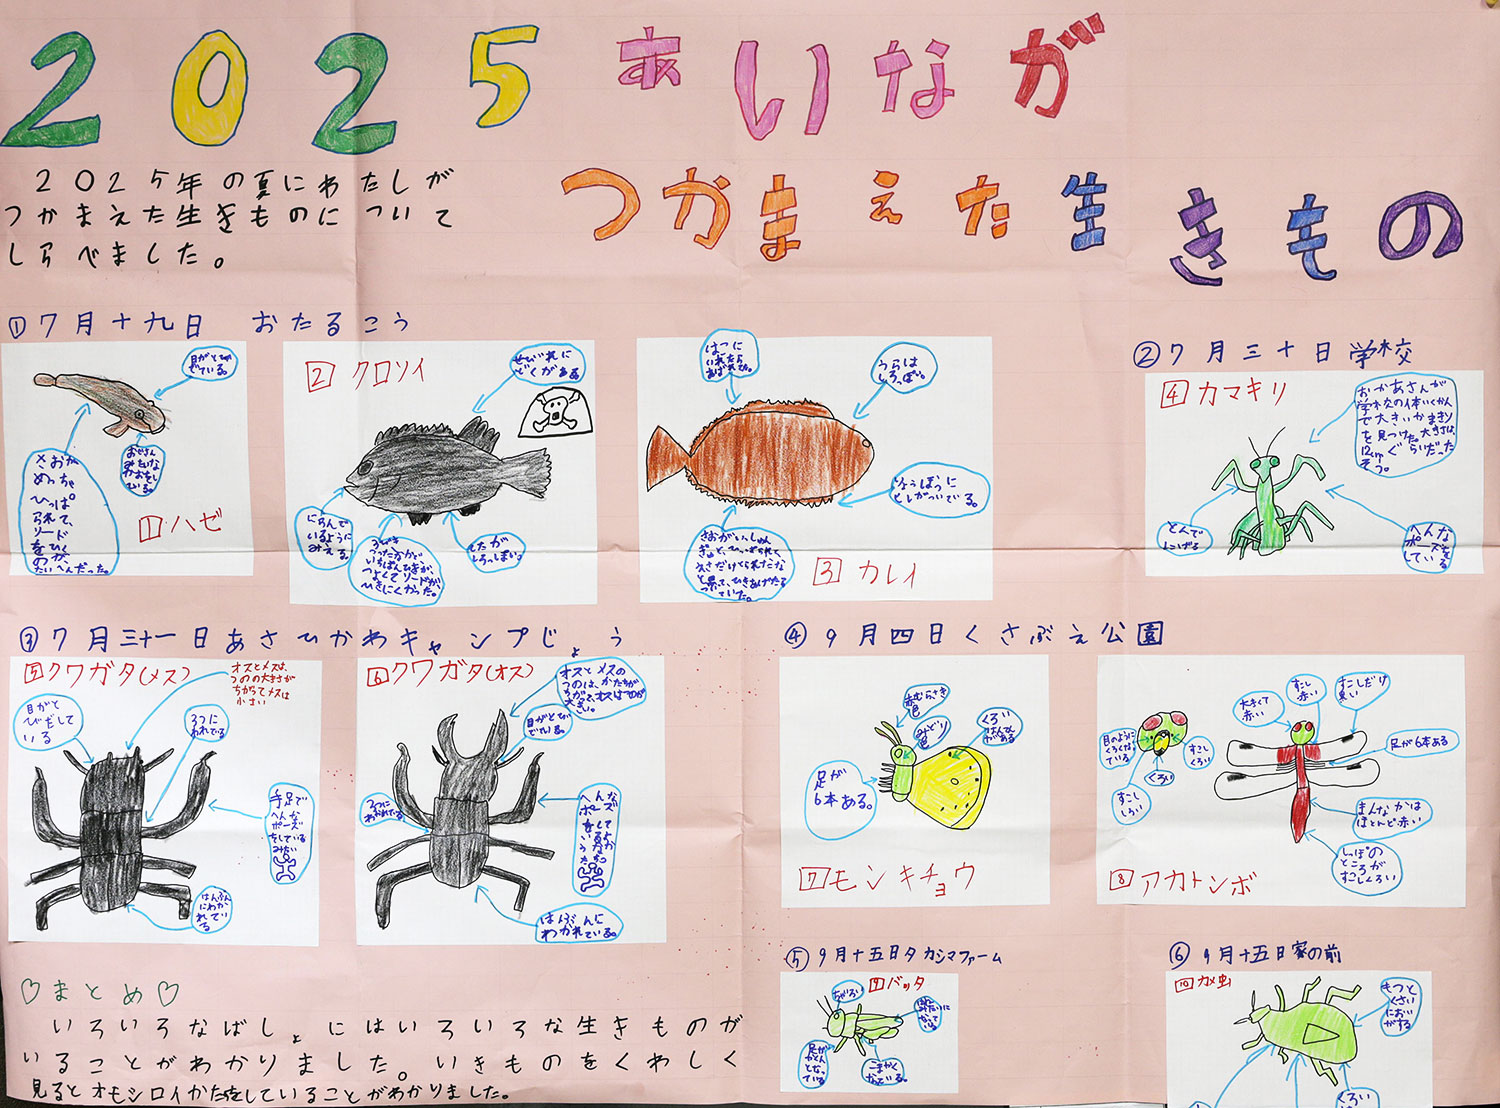 2025 あいなが
つかまえた生きもの
2025年の夏にわたしが
つかまえた生きものについて
しらべました。
①7月十九日 おたるこう
目がとび
でている。
おじさん
みたいな
かおをし
ている。
さおが
めっちゃ
ひっぱ
られて、
リードを
ひくのが
たいへんだった。
1 ハゼ
2 クロソイ
せびれに
どくがある。
にらんで
いるように
みえる。
いちばんひきが、
つよくてリードが、
ひきにくかった。
したが
しろっぽい。
はこに
いれたら
あばれてた。
うらは
しろっぽい。
りょうほうに
ひれがついている。
3 カレイ
②7月三十日学校
4 カマキリ
おかあさんが
学校の体いくかん
で大きいかまきり
を見つけた。大きさは、
12cmぐらいだった
そう。
とんで
にげる
へんな
ポーズを
している
③7月三十一日あさひかわキャンプじょう
5 クワガタ(メス)
オスとメスは、
つのの大きさが
ちがってメスは
小さい
目がと
びだして
いる
3つに
わかれている
手足で
へんな
ポーズ
をしている
みたい
はんぶん
にわか
れてい
る
6 クワガタ(オス)
オスとメスの
つのは、かたちが
ちがって、オスはつのが
大きい。
目がとび
でている。
2つに
わかれている
はんぶんに
わかれている。
④9月四日くさぶえ公園
赤むらさき
色
みどり
色
くろい
はんてん
がある
足が
6本ある。
7 モンキチョウ
大きくて
赤い
すこし
赤い
すこしだけ
黒い
足が6本ある
目のように
くろくなっ
ている
すこし
くろい
くろい
すこし
しろい
まんなかは
ほとんど赤い
しっぽの
ところが
すこしくろい
8 アカトンボ
⑤9月十五日タカシマファーム
9 バッタ
ちゃいろい
足が
かくかく
となっ
ている
こまかく
なっている。
⑥9月十五日家の前
10 カメ虫
もっと
くさい
においが
する
くろい
♡まとめ♡
いろいろなばしょにはいろいろな生きものが
いることがわかりました。いきものをくわしく
見るとオモシロイかたちをしていることがわかりました。